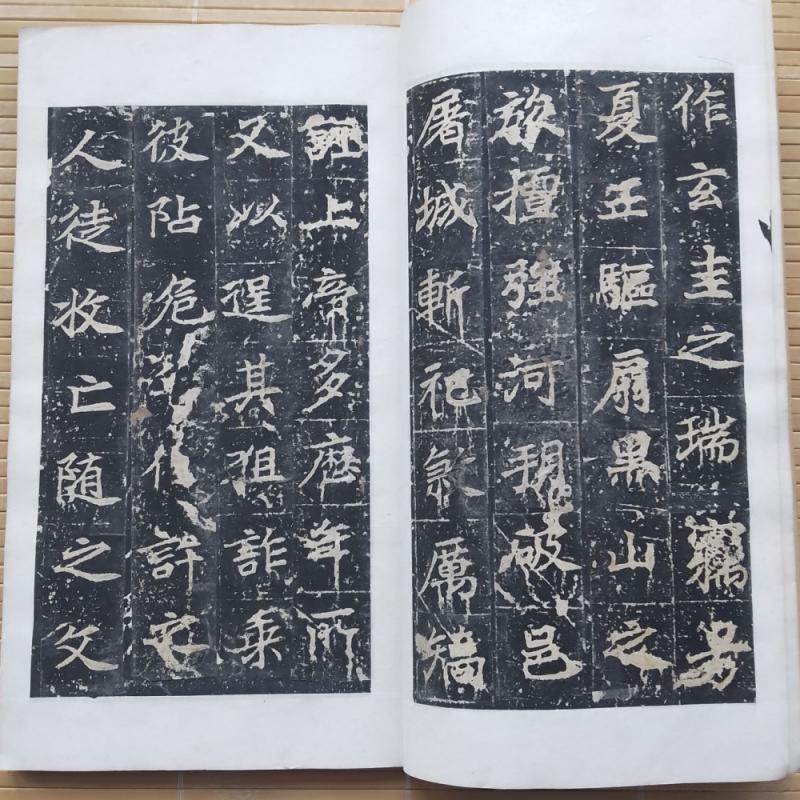 作玄圭之瑞竊号
夏王驅扇黑山之
旅擅強河朔破邑
屠城斬祀殺厲矯
誣上帝多歷年所
又以逞其狙詐乘
彼阽危許
人徒收亡随之文